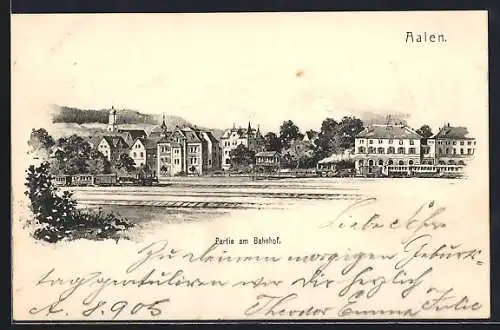 Aalen.
Partie am Bahnhof.
Liebe
Zu Deinem morgigen Geburts-
tag gratulieren wir Dir herzlich
A. 8.905 Theodor Emma Julie